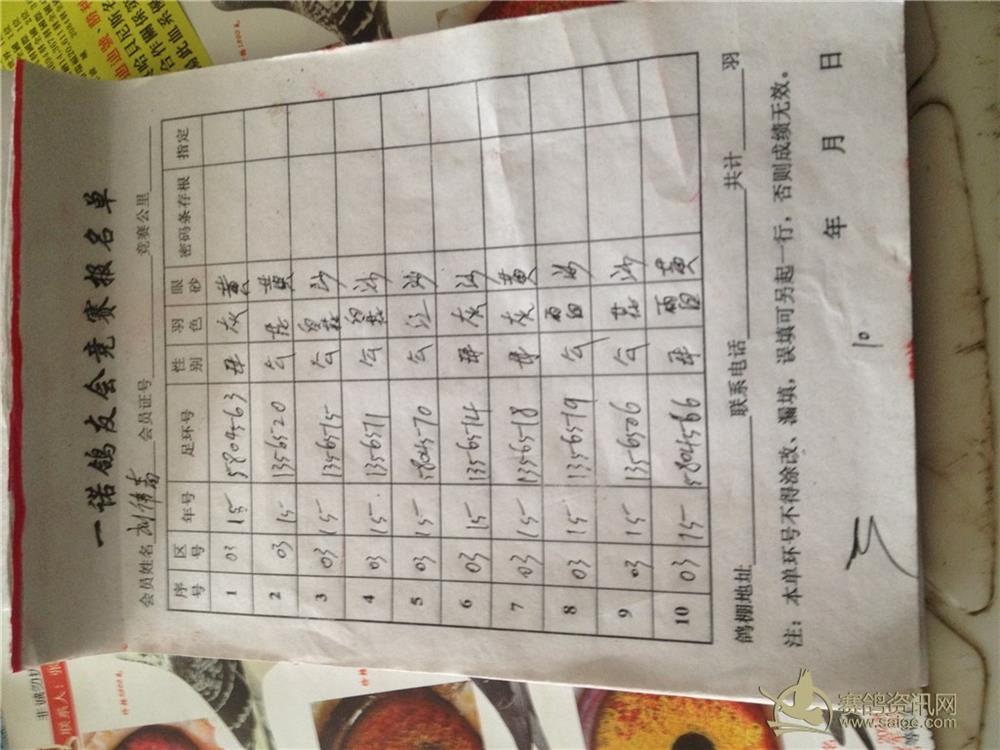 一诺鸽友会竞赛报名单
会员姓名 会员证号 竞赛公里
序号 区号 年号 足环号 性别 羽色 眼砂 密码条存根 指定
1 03 15 5804563 灰 黄
2 03 15 1356520 公 黄
3 03 15 1356515 公 沙
4 03 15 1356511 公 沙
5 03 15 5804570 公 红 沙
6 03 15 1356514 灰 沙
7 03 15 1356518 灰 黄
8 03 15 1356519 公 雨白 沙
9 03 15 1356506 公 花 沙
10 03 15 5804566 雨白 黄
鸽棚地址 联系电话 共计 羽
注：本单环号不得涂改、漏填，误填可另起一行，否则成绩无效。
年 月 日
10
赛鸽资讯网
www.saige.com